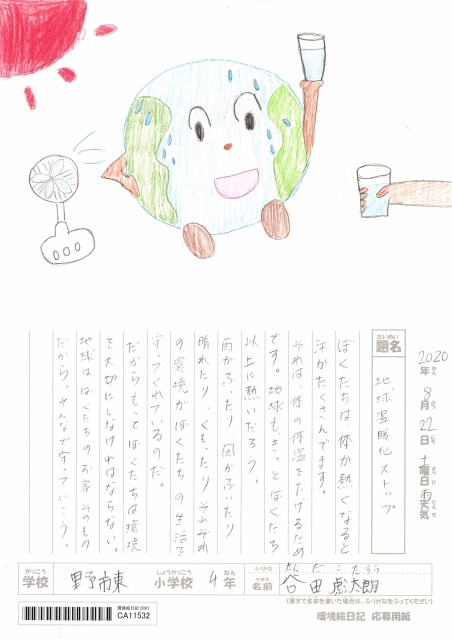 2020年8月22日 土曜日 天気
だいめい
題名
地球温暖化ストップ
ぼくたちは体が熱くなると
汗がたくさんでます。
それは、体の体温を下げるため
です。地球もきっとぼくたち
以上に熱いだろう。
雨がふったり風がふいたり
晴れたり、くもったりそれぞれ
の環境がぼくたちの生活を
守ってくれているのだ。
だからもってぼくたちは環境
を大切にしなければならない。
地球はぼくたちのお家そのもの
だから。みんなで守っていこう。
がっこう
学校
野市東
しょうがっこう
小学校
4年
ふりがな
たんだこたろう
なまえ
名前
谷田虎太朗
(漢字で名前を書いた場合は、ふりがなをふってください)
環境絵日記 2020
CA11532
環境絵日記 応募用紙